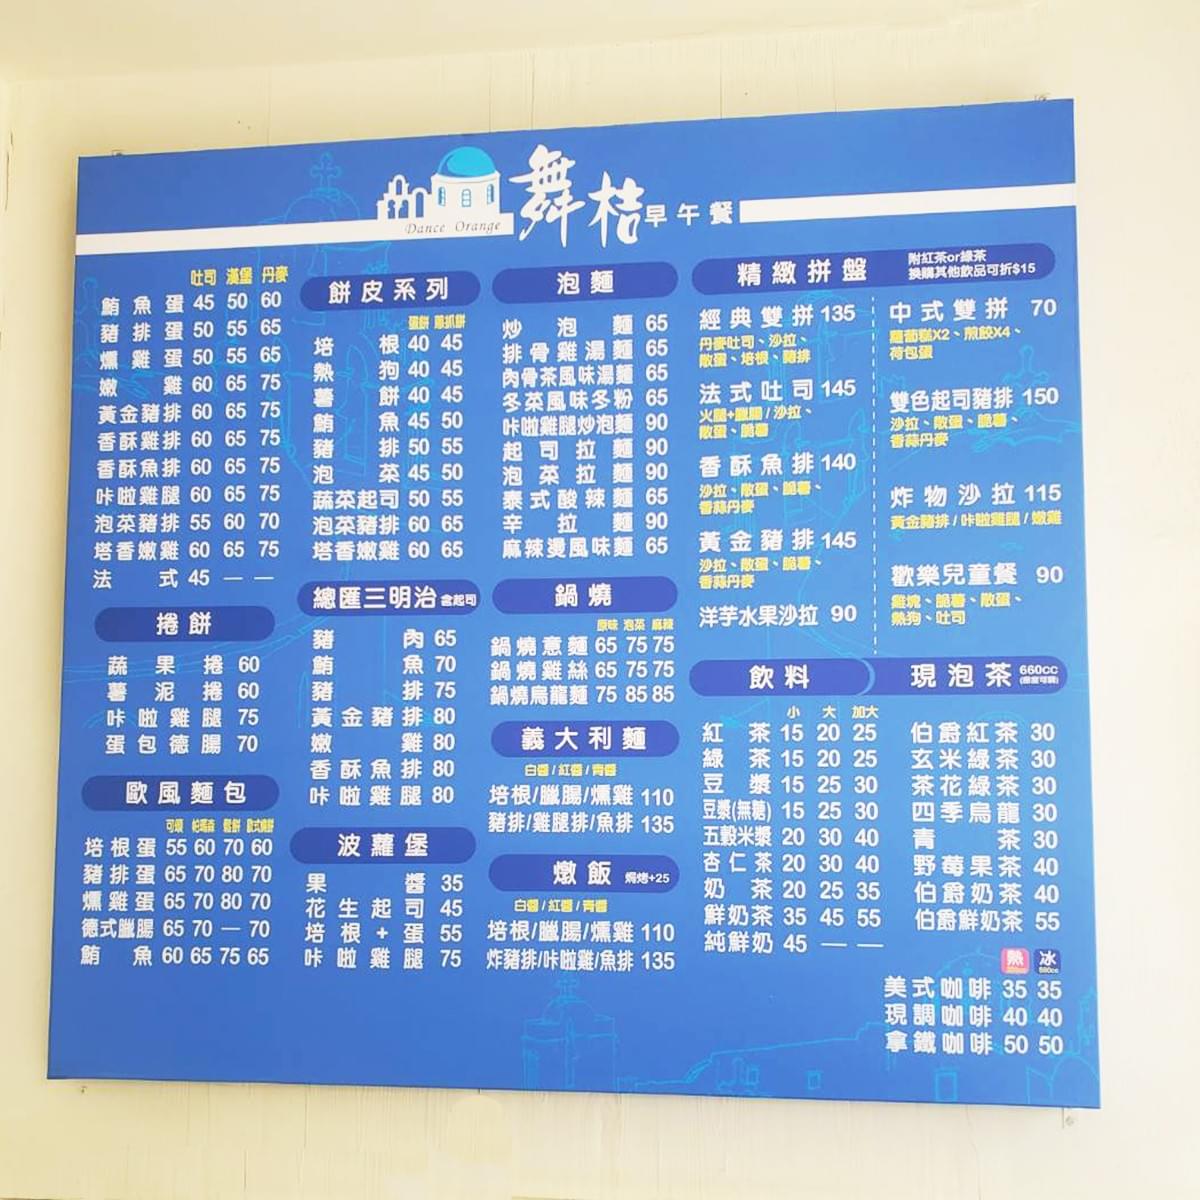 舞桔早午餐
Dance Orange
吐司 漢堡 丹麥
鮪魚蛋 45 50 60
豬排蛋 50 55 65
燻雞蛋 50 55 65
嫩雞 60 65 75
黃金豬排 60 65 75
香酥雞排 60 65 75
香酥魚排 60 65 75
咔啦雞腿 60 65 75
泡菜豬排 55 60 70
塔香嫩雞 60 65 75
法式 45 — —
捲餅
蔬果捲 60
薯泥捲 60
咔啦雞腿 75
蛋包德腸 70
歐風麵包
可頌 帕瑪森 鬆餅 歐式燒餅
培根蛋 55 60 70 60
豬排蛋 65 70 80 70
燻雞蛋 65 70 80 70
德式臘腸 65 70 — 70
鮪魚 60 65 75 65
餅皮系列
蛋餅 蔥抓餅
培根 40 45
熱狗 40 45
薯餅 40 45
鮪魚 45 50
豬排 50 55
泡菜 45 50
蔬菜起司 50 55
泡菜豬排 60 65
塔香嫩雞 60 65
總匯三明治 含起司
豬肉 65
鮪魚 70
豬排 75
黃金豬排 80
嫩雞 80
香酥魚排 80
咔啦雞腿 80
波蘿堡
果醬 35
花生起司 45
培根+蛋 55
咔啦雞腿 75
泡麵
炒泡麵 65
排骨雞湯麵 65
肉骨茶風味湯麵 65
冬菜風味冬粉 65
咔啦雞腿炒泡麵 90
起司拉麵 90
泡菜拉麵 90
泰式酸辣麵 65
辛拉麵 90
麻辣燙風味麵 65
鍋燒
原味 泡菜 麻辣
鍋燒意麵 65 75 75
鍋燒雞絲 65 75 75
鍋燒烏龍麵 75 85 85
義大利麵
白醬/紅醬/青醬
培根/臘腸/燻雞 110
豬排/雞腿排/魚排 135
燉飯 焗烤+25
白醬/紅醬/青醬
培根/臘腸/燻雞 110
炸豬排/咔啦雞/魚排 135
精緻拼盤
附紅茶or綠茶
換購其他飲品可折$15
經典雙拼 135
丹麥吐司、沙拉、
散蛋、培根、豬排
法式吐司 145
火腿+臘腸/沙拉、
散蛋、脆薯
香酥魚排 140
沙拉、散蛋、脆薯、
香蒜丹麥
黃金豬排 145
沙拉、散蛋、脆薯、
香蒜丹麥
洋芋水果沙拉 90
中式雙拼 70
蘿蔔糕X2、煎餃X4、
荷包蛋
雙色起司豬排 150
沙拉、散蛋、脆薯、
香蒜丹麥
炸物沙拉 115
黃金豬排/咔啦雞腿/嫩雞
歡樂兒童餐 90
雞塊、脆薯、散蛋、
熱狗、吐司
飲料
小 大 加大
紅茶 15 20 25
綠茶 15 20 25
豆漿 15 25 30
豆漿(無糖) 15 25 30
五穀米漿 20 30 40
杏仁茶 20 30 40
奶茶 20 25 35
鮮奶茶 35 45 55
純鮮奶 45 — —
現泡茶 660cc
伯爵紅茶 30
玄米綠茶 30
茶花綠茶 30
四季烏龍 30
青茶 30
野莓果茶 40
伯爵奶茶 40
伯爵鮮奶茶 55
熱 冰
美式咖啡 35 35
現調咖啡 40 40
拿鐵咖啡 50 50